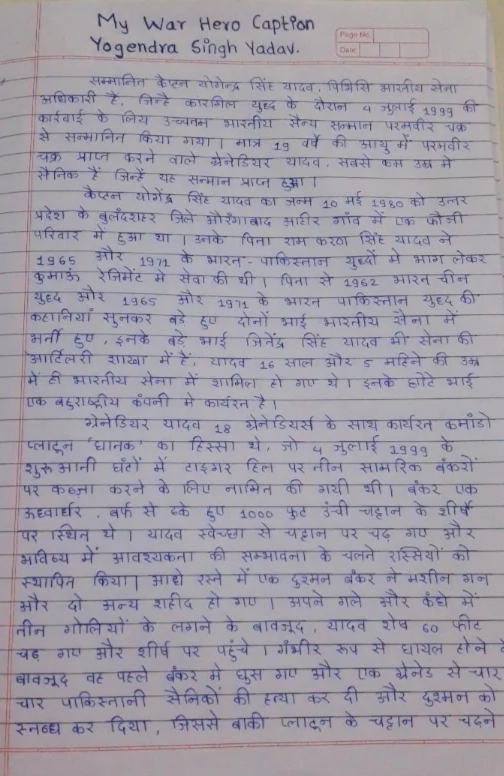 My War Hero Caption
Yogendra Singh Yadav.
Page No.
Date
सम्मानित कैप्टन योगेन्द्र सिंह यादव, भारतीय सेना
अधिकारी है, जिन्हे कारगिल युद्ध के दौरान 4 जुलाई 1999 की
कार्रवाई के लिय उच्चतम भारतीय सैन्य सम्मान परमवीर चक्र
से सम्मानित किया गया। मात्र 19 वर्ष की आयु में परमवीर
चक्र प्राप्त करने वाले ग्रेनेडियर यादव, सबसे कम उम्र मे
सैनिक हैं जिन्हें यह सम्मान प्राप्त हुआ।
कैप्टन योगेंद्र सिंह यादव का जन्म 10 मई 1980 को उत्तर
प्रदेश के बुलंदशहर जिले औरंगाबाद अहीर गाँव में एक फौजी
परिवार में हुआ था। उनके पिता राम करण सिंह यादव ने
1965 और 1971 के भारत-पाकिस्तान युद्धों में भाग लेकर
कुमाऊं रेजिमेंट मे सेवा की थी। पिता से 1962 भारत चीन
युद्ध और 1965 और 1971 के भारत पाकिस्तान युद्ध की
कहानियां सुनकर बडे हुए दोनों भाई भारतीय सेना में
भर्ती हुए, इनके बड़े भाई जितेंद्र सिंह यादव भी सेना की
आर्टिलरी शाखा में हैं, यादव 16 साल और 5 महिने की उम्र
में ही भारतीय सेना में शामिल हो गए थे। इनके छोटे भाई
एक बहुराष्ट्रीय कंपनी मे कार्यरत है।
ग्रेनेडियर यादव 18 ग्रेनेडियर्स के साथ कार्यरत कमांडो
प्लाटून 'घातक' का हिस्सा थे, जो 4 जुलाई 1999 के
शुरूआती घंटों में टाइगर हिल पर तीन सामरिक बंकरों
पर कब्ज़ा करने के लिए नामित की गयी थी। बंकर एक
ऊर्ध्वाधर, बर्फ से ढके हुए 1000 फुट ऊंची चट्टान के शीर्ष
पर स्थित थे। यादव स्वेच्छा से चट्टान पर चढ़ गए और
भविष्य में आवश्यकता की सम्भावना के चलते रस्सियों को
स्थापित किया। आधे रस्ते में एक दुश्मन बंकर ने मशीन गन
और दो अन्य शहीद हो गए। अपने गले और कंधे में
तीन गोलियों के लगने के बावजूद, यादव शेष 60 फीट
चढ़ गए और शीर्ष पर पहुंचे। गंभीर रूप से घायल होने के
बावजूद वह पहले बंकर में घुस गए और एक ग्रेनेड से चार
चार पाकिस्तानी सैनिकों की हत्या कर दी और दुश्मन को
स्तब्ध कर दिया, जिससे बाकी प्लाटून के चट्टान पर चढ़ने